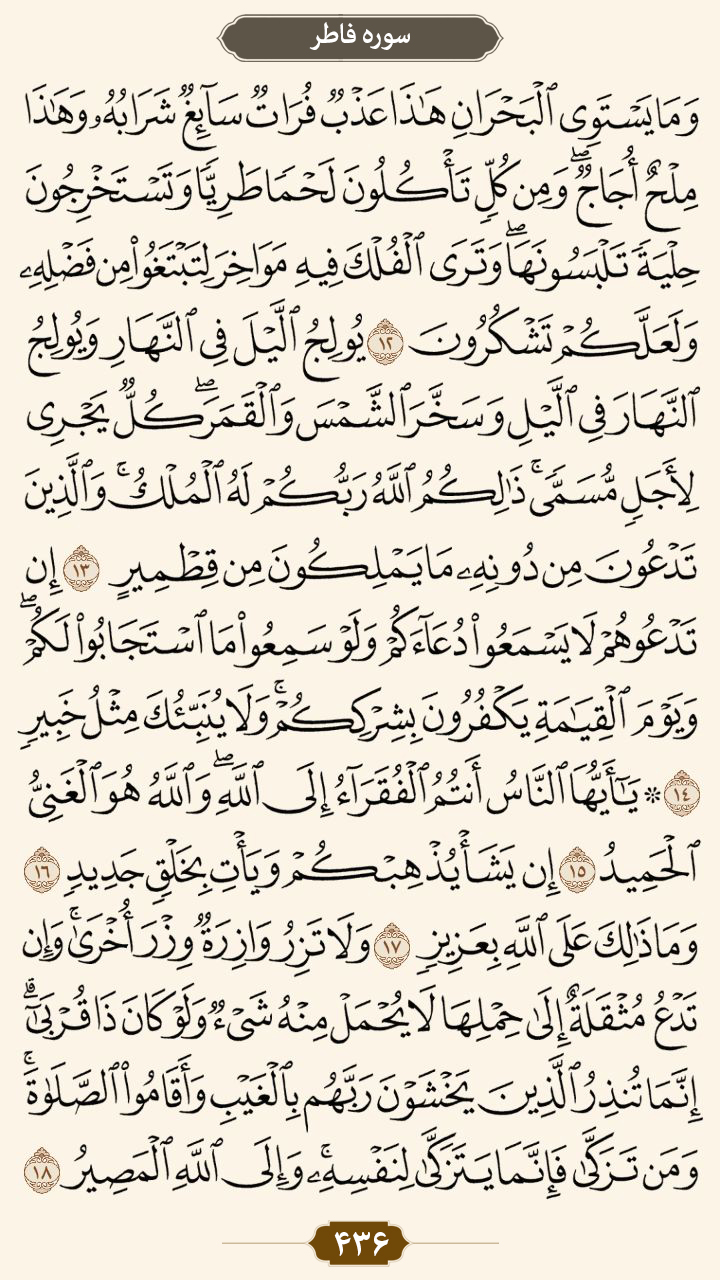 سوره فاطر
وَمَا يَسْتَوِى ٱلْبَحْرَانِ هَٰذَا عَذْبٌ فُرَاتٌ سَآئِغٌ شَرَابُهُۥ وَهَٰذَا
مِلْحٌ أُجَاجٌ ۖ وَمِن كُلٍّ تَأْكُلُونَ لَحْمًا طَرِيًّا وَتَسْتَخْرِجُونَ
حِلْيَةً تَلْبَسُونَهَا ۖ وَتَرَى ٱلْفُلْكَ فِيهِ مَوَاخِرَ لِتَبْتَغُوا۟ مِن فَضْلِهِۦ
وَلَعَلَّكُمْ تَشْكُرُونَ ١٢ يُولِجُ ٱلَّيْلَ فِى ٱلنَّهَارِ وَيُولِجُ
ٱلنَّهَارَ فِى ٱلَّيْلِ وَسَخَّرَ ٱلشَّمْسَ وَٱلْقَمَرَ ۖ كُلٌّ يَجْرِى
لِأَجَلٍ مُّسَمًّى ۚ ذَٰلِكُمُ ٱللَّهُ رَبُّكُمْ لَهُ ٱلْمُلْكُ ۚ وَٱلَّذِينَ
تَدْعُونَ مِن دُونِهِۦ مَا يَمْلِكُونَ مِن قِطْمِيرٍ ١٣ إِن
تَدْعُوهُمْ لَا يَسْمَعُوا۟ دُعَآءَكُمْ وَلَوْ سَمِعُوا۟ مَا ٱسْتَجَابُوا۟ لَكُمْ ۖ
وَيَوْمَ ٱلْقِيَٰمَةِ يَكْفُرُونَ بِشِرْكِكُمْ ۚ وَلَا يُنَبِّئُكَ مِثْلُ خَبِيرٍ
١٤ ۞ يَٰٓأَيُّهَا ٱلنَّاسُ أَنتُمُ ٱلْفُقَرَآءُ إِلَى ٱللَّهِ ۖ وَٱللَّهُ هُوَ ٱلْغَنِىُّ
ٱلْحَمِيدُ ١٥ إِن يَشَأْ يُذْهِبْكُمْ وَيَأْتِ بِخَلْقٍ جَدِيدٍ ١٦
وَمَا ذَٰلِكَ عَلَى ٱللَّهِ بِعَزِيزٍ ١٧ وَلَا تَزِرُ وَازِرَةٌ وِزْرَ أُخْرَىٰ ۚ وَإِن
تَدْعُ مُثْقَلَةٌ إِلَىٰ حِمْلِهَا لَا يُحْمَلْ مِنْهُ شَىْءٌ وَلَوْ كَانَ ذَا قُرْبَىٰٓ ۗ
إِنَّمَا تُنذِرُ ٱلَّذِينَ يَخْشَوْنَ رَبَّهُم بِٱلْغَيْبِ وَأَقَامُوا۟ ٱلصَّلَوٰةَ ۚ
وَمَن تَزَكَّىٰ فَإِنَّمَا يَتَزَكَّىٰ لِنَفْسِهِۦ ۚ وَإِلَى ٱللَّهِ ٱلْمَصِيرُ ١٨
۴۳۶